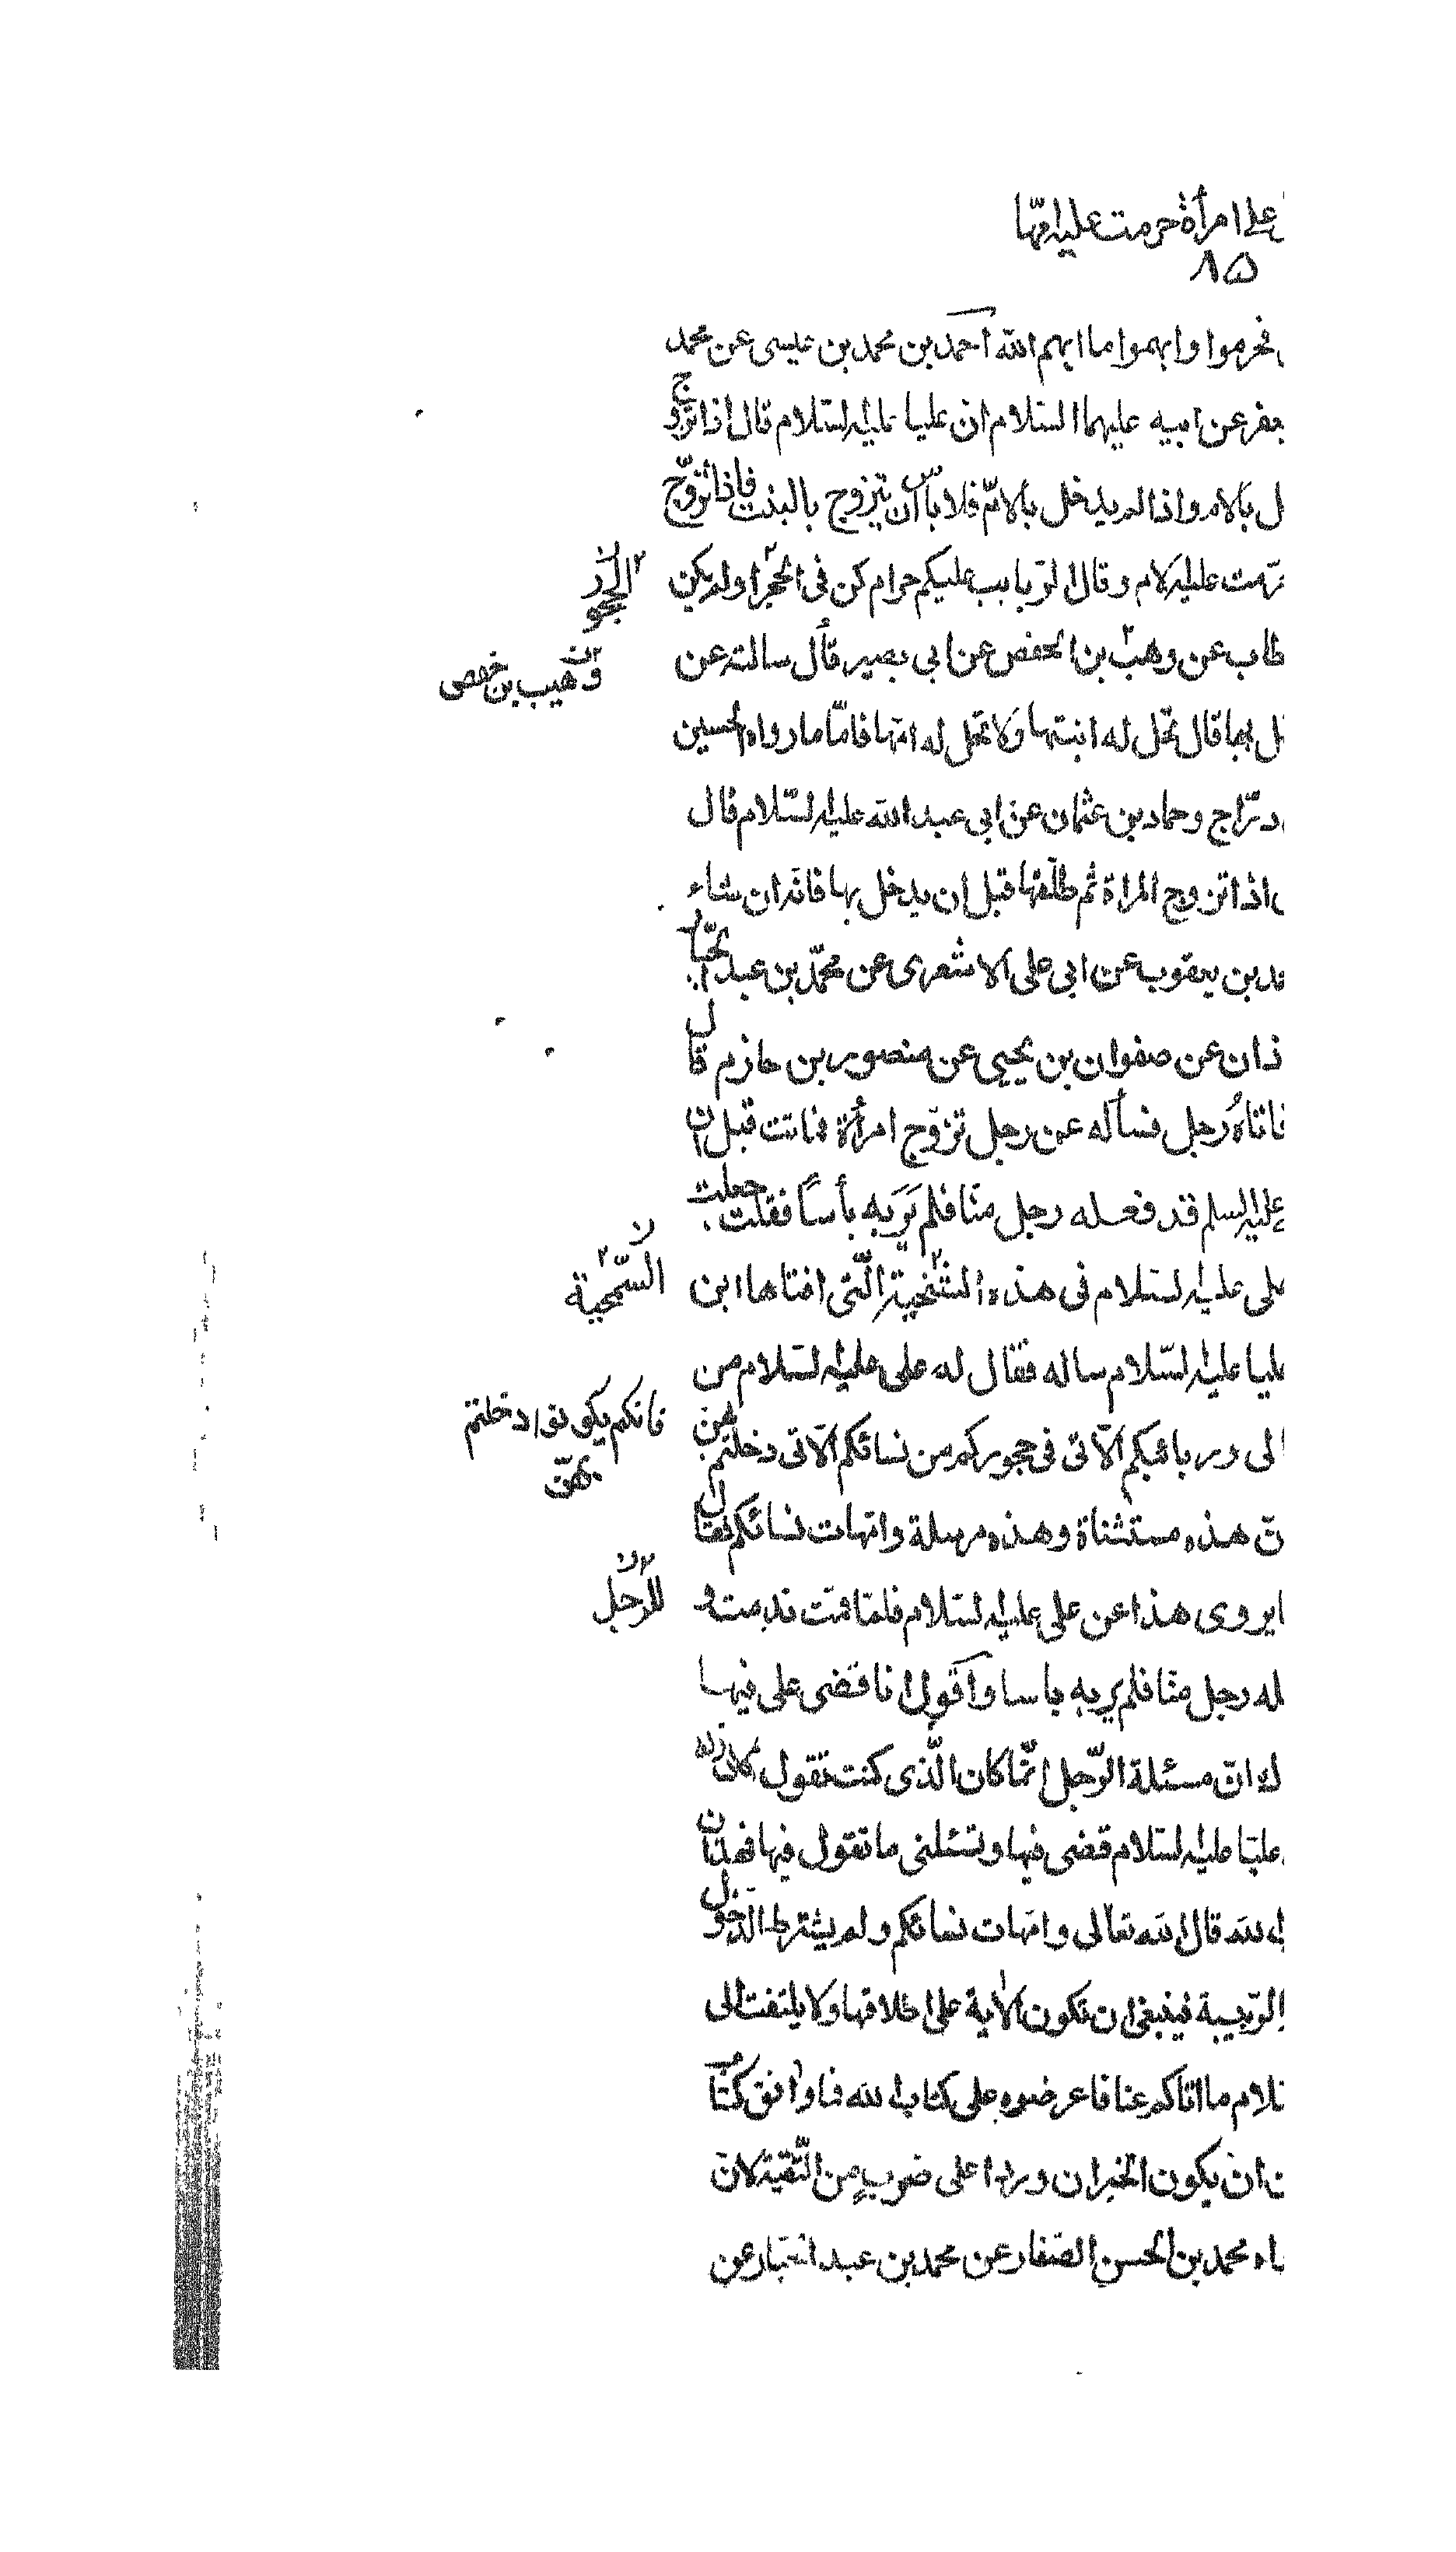 على امرأة حرمت عليه امّها
٨٥
فحرموا وابهموا ما ابهم الله احمد بن محمد بن عيسى عن محمد
جعفر عن ابيه عليهما السلام ان عليا عليه السّلام قال اذا تزوج
بالام واذا لم يدخل بالامّ فلا بأس ان يتزوج بالبنت فاذا تزوّج
حرّمت عليه الام وقال الرّبايب عليكم حرام كن في الحجر او لم يكن
الحجور
عن وهب بن الحفص عن ابي بصير قال سالته عن
وهيب بن حفص
بها قال تحل له ابنتها ولا تحل له امّها فامّا ما رواه الحسين
درّاج وحماد بن عثمان عن ابي عبد الله عليه السّلام قال
اذا تزوج المراة ثم طلّقها قبل ان يدخل بها فانّه ان شاء
بن يعقوب عن ابي على الاشعرى عن محمّد بن عبد الجبّار
ذان عن صفوان بن يحيى عن منصور بن حازم قال
فاتاه رجل فسأله عن رجل تزوّج امرأة فماتت قبل ان
عليه السلم قد فعله رجل منّا فلم يَرَ به بأسًا فقلت جعلت
على عليه السّلام في هذه الشخية الّتى افتاها ابن
السّمجية
عليا عليه السّلام ساله فقال له على عليه السّلام من
الى وربائبكم الّاتى في حجوركم من نسائكم الّاتى دخلتم بهنّ
فانكم يكونوا دخلتم
بهنّ
انّ هذه مستثناة وهذه مرسلة وامّهات نسائكم فقال
يروى هذا عن على عليه السّلام فلمّا قمت ندمت و
للرّجل
له رجل منّا فلم ير به باسا واقول انا قضى على فيها
انّ مسئلة الرّجل انّما كان الّذى كنت تقول
عليّا عليه السّلام قضى فيها وتسئلنى ما تقول فيها فهذان
الله قال الله تعالى وامّهات نسائكم ولم يشترط الدّخول
الرّبيبة فينبغى ان تكون الآية على اطلاقها ولا يلتفت الى
السّلام ما اتاكم عنا فاعرضوه على كتاب الله فما وافق كتاب
ان يكون الخبران وردا على ضرب من التّقية لانّ
محمد بن الحسن الصّفار عن محمد بن عبد الجبّار عن